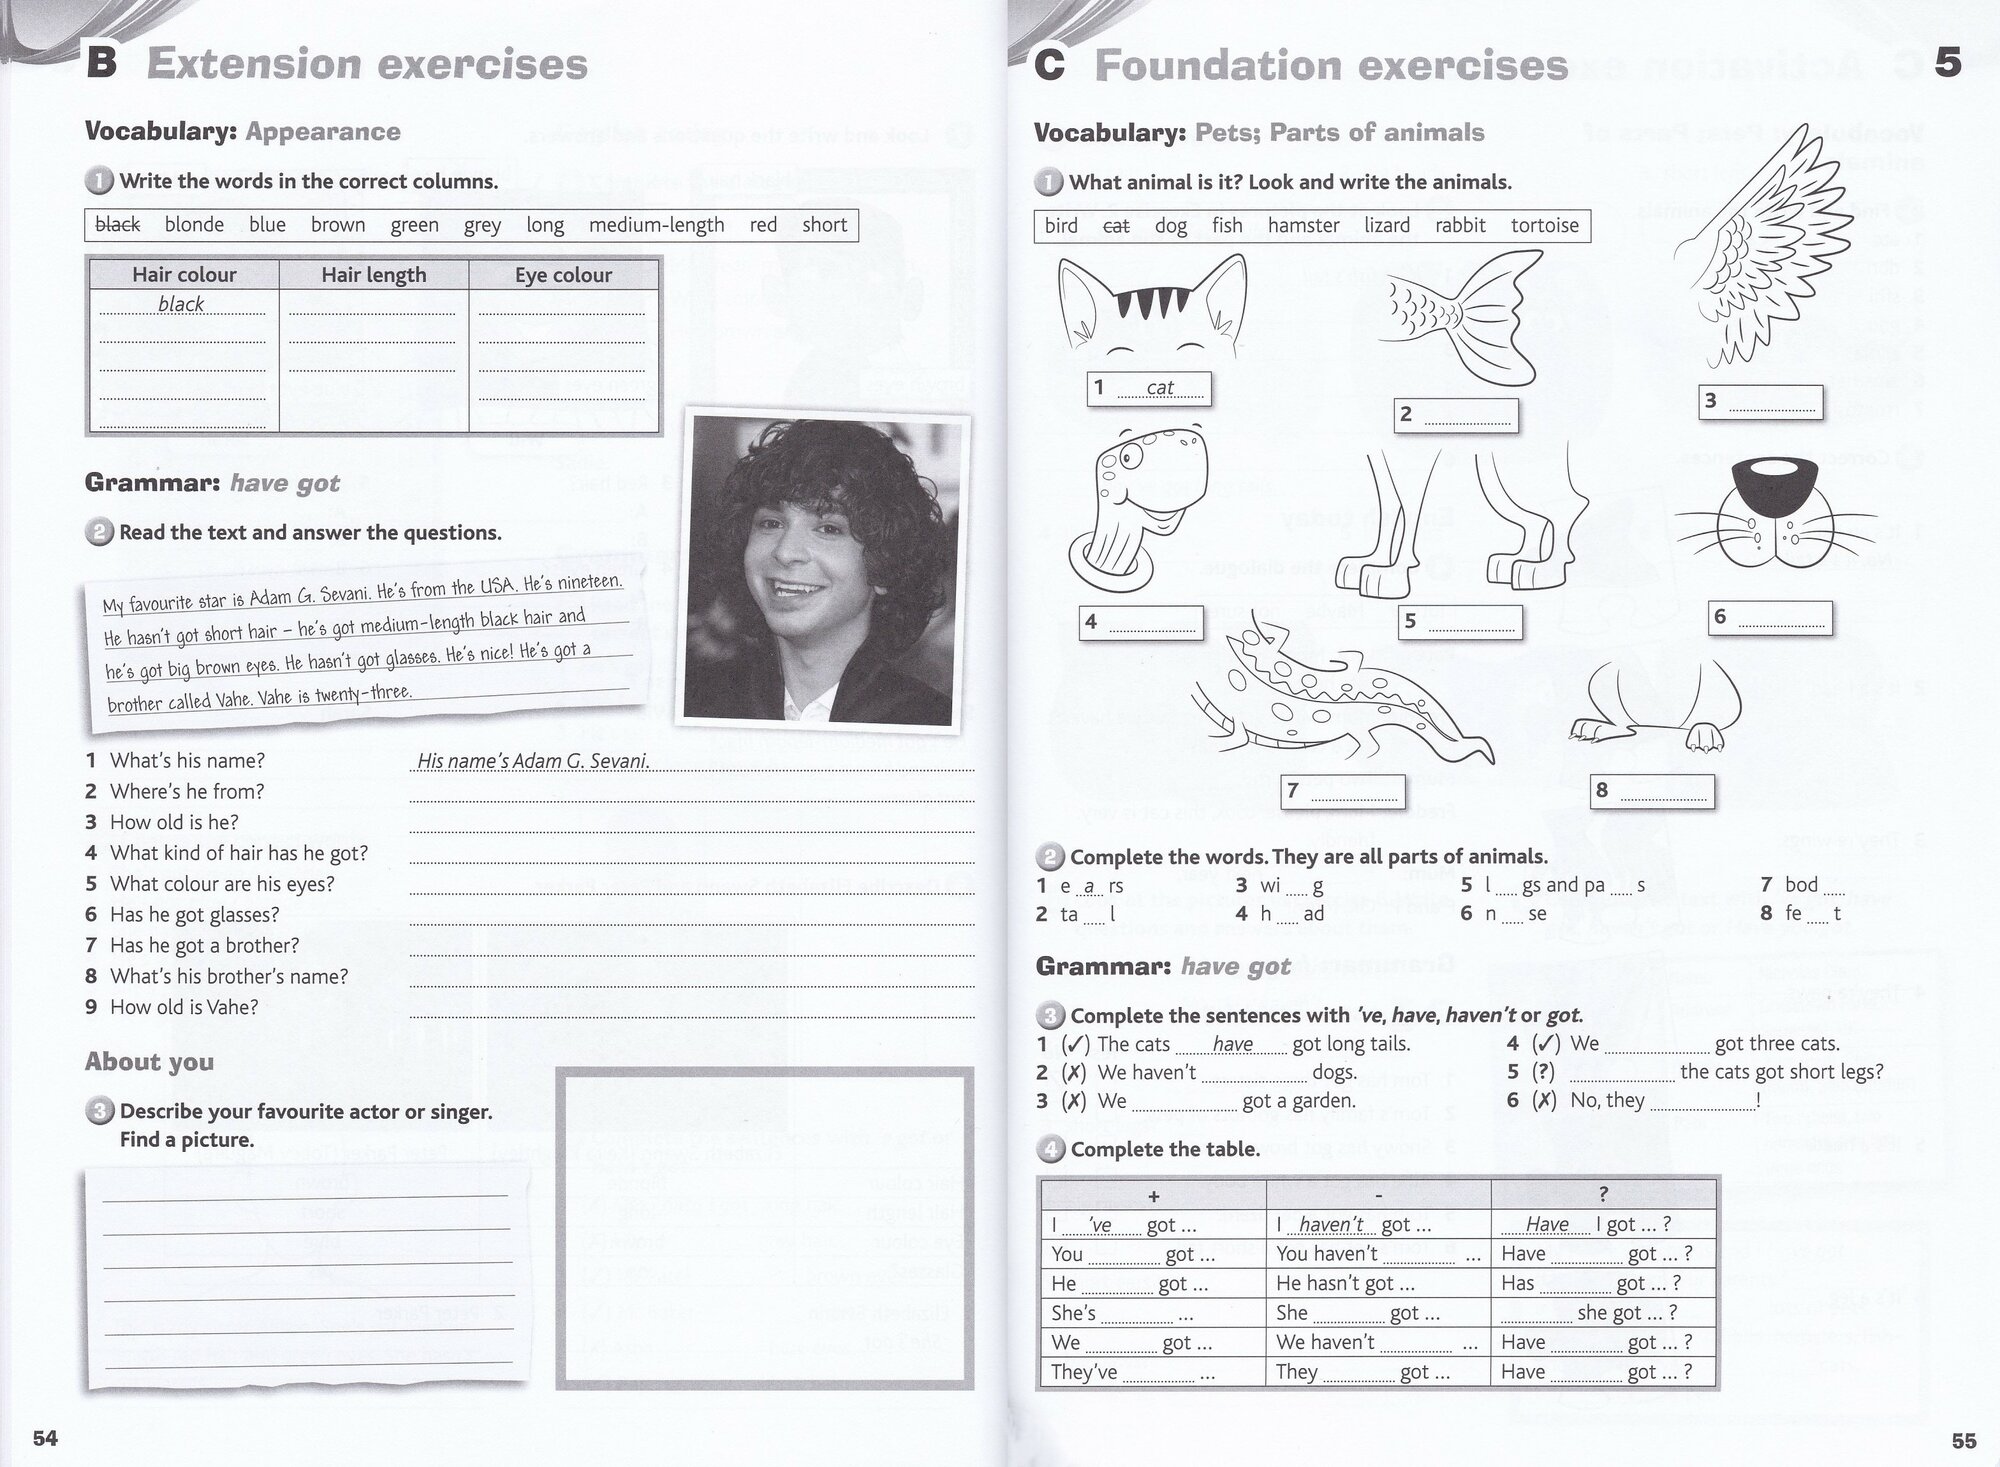 B Extension exercises
Vocabulary: Appearance
1 Write the words in the correct columns.
black blonde blue brown green grey long medium-length red short
Hair colour Hair length Eye colour
black
Grammar: have got
2 Read the text and answer the questions.
My favourite star is Adam G. Sevani. He's from the USA. He's nineteen.
He hasn't got short hair – he's got medium-length black hair and
he's got big brown eyes. He hasn't got glasses. He's nice! He's got a
brother called Vahe. Vahe is twenty-three.
1 What's his name? His name's Adam G. Sevani.
2 Where's he from?
3 How old is he?
4 What kind of hair has he got?
5 What colour are his eyes?
6 Has he got glasses?
7 Has he got a brother?
8 What's his brother's name?
9 How old is Vahe?
About you
3 Describe your favourite actor or singer.
Find a picture.
54
C Foundation exercises 5
Vocabulary: Pets; Parts of animals
1 What animal is it? Look and write the animals.
bird cat dog fish hamster lizard rabbit tortoise
1 cat
2
3
4
5
6
7
8
2 Complete the words. They are all parts of animals.
1 e a rs 3 wi ..... g 5 l ..... gs and pa ..... s 7 bod .....
2 ta ..... l 4 h ..... ad 6 n ..... se 8 fe ..... t
Grammar: have got
3 Complete the sentences with 've, have, haven't or got.
1 (✓) The cats have got long tails. 4 (✓) We .......... got three cats.
2 (✗) We haven't .......... dogs. 5 (?) .......... the cats got short legs?
3 (✗) We .......... got a garden. 6 (✗) No, they ..........!
4 Complete the table.
+ - ?
I 've got ... I haven't got ... Have I got ... ?
You .......... got ... You haven't .......... ... Have .......... got ... ?
He .......... got ... He hasn't got ... Has .......... got ... ?
She's .......... ... She .......... got ... .......... she got ... ?
We .......... got ... We haven't .......... ... Have .......... got ... ?
They've .......... ... They .......... got ... Have .......... got ... ?
55